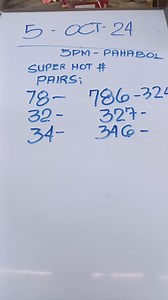 5 - OCT - 24
5PM - PAHABOL
SUPER HOT #
PAIRS;
78- 786-324
32- 327-
34- 346-